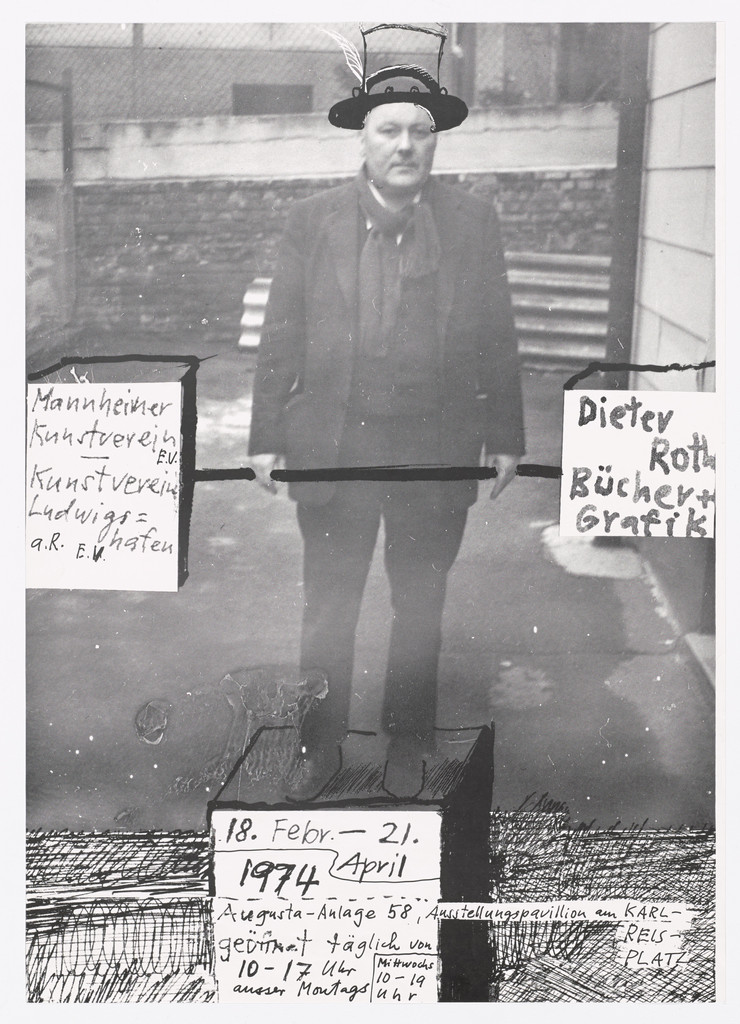 Mannheimer
Kunstverein
E.V.
Kunstverein
Ludwigs=
hafen
a.R. E.V.
Dieter
Roth
Bücher +
Grafik
18. Febr. – 21.
April
1974
Augusta-Anlage 58, Ausstellungspavillion am KARL-
REIS-
PLATZ
geöffnet täglich von
10-17 Uhr
ausser Montags
Mittwochs
10-19
Uhr